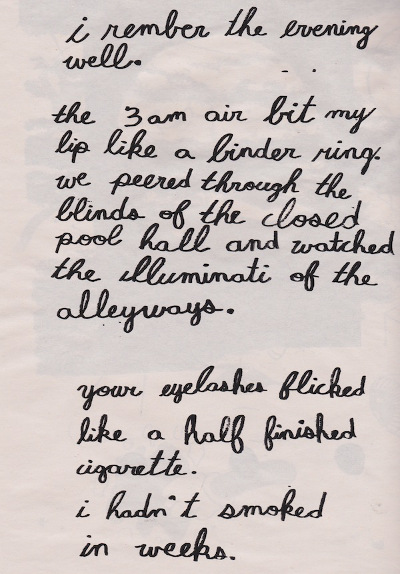 i rember the evening
well.
the 3am air bit my
lip like a binder ring.
we peered through the
blinds of the closed
pool hall and watched
the illuminati of the
alleyways.
your eyelashes flicked
like a half finished
cigarette.
i hadn't smoked
in weeks.